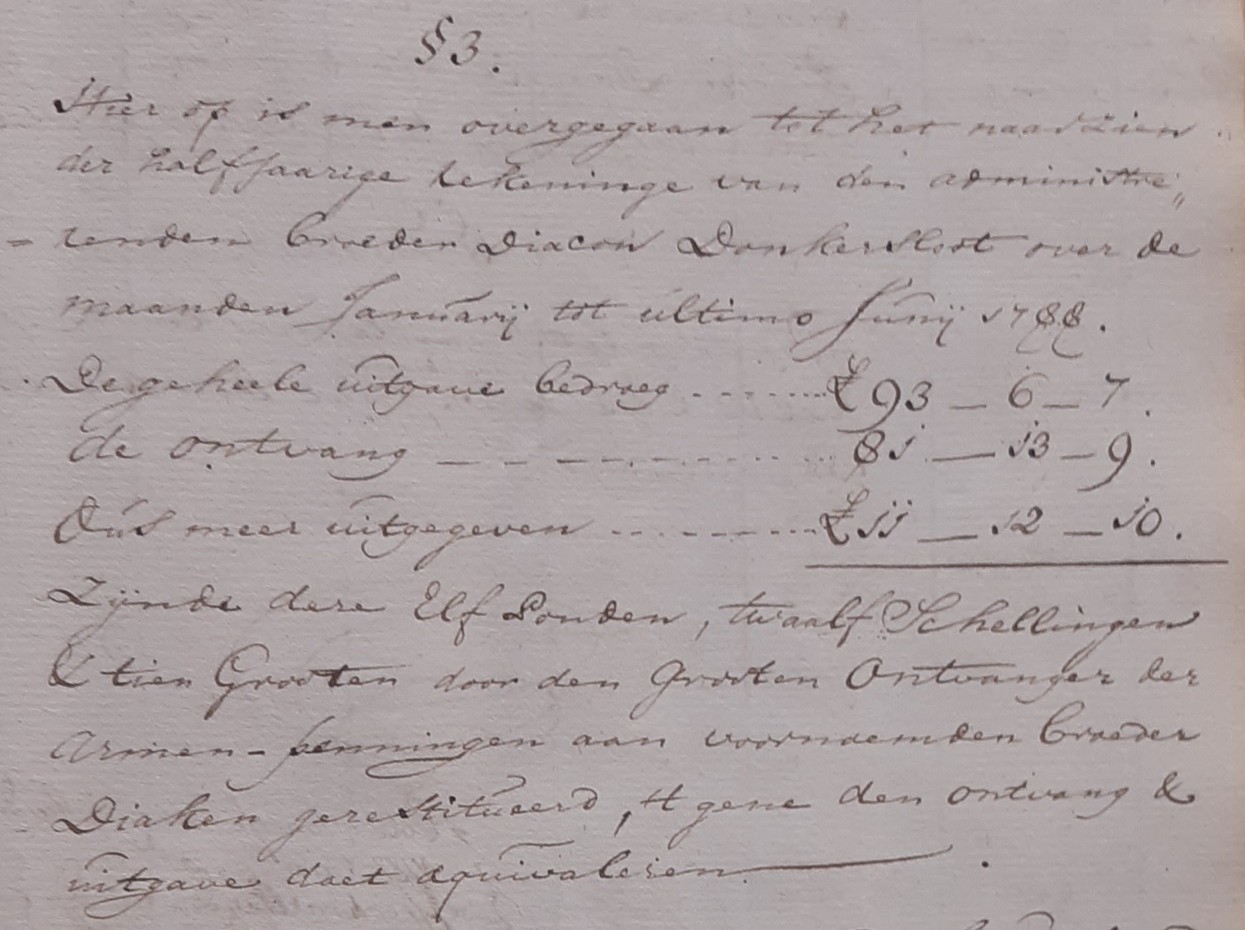 § 3.
Hier op is men overgegaan tot het naarzien
der halfjaarige rekeninge van den administre„
= renden broeder Diacon Donkersloot over de
maanden Januarij tot ultimo Junij 1788.
De geheele uitgave bedroeg ------- £ 93 — 6 — 7.
de ontvang — — — — — ------- 81 — 13 — 9.
Dus meer uitgegeven --------- £ 11 — 12 — 10.
Zijnde deze Elf Ponden, twaalf Schellingen
& tien Grooten door den Grooten Ontvanger der
Armen-penningen aan voornoemden broeder
Diaken gerestitueerd, 't gene den ontvang &
uitgave doet æquivaleren ——— .